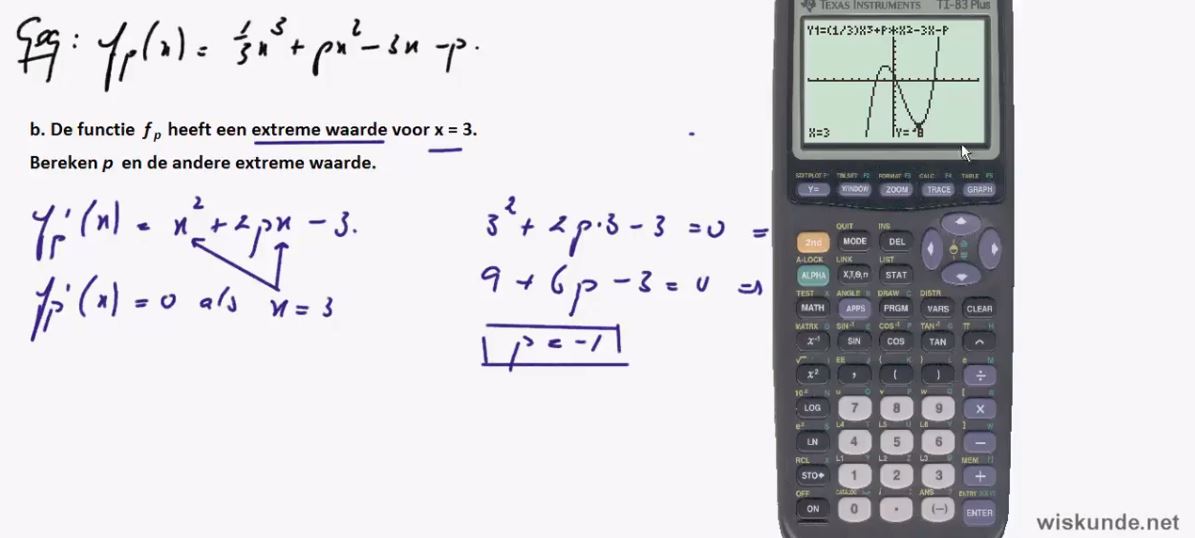 Geg: fp(x) = 1/3 x³ + px² - 3x - p.
b. De functie f p heeft een extreme waarde voor x = 3.
Bereken p en de andere extreme waarde.
fp'(x) = x² + 2px - 3.
fp'(x) = 0 als x = 3
3² + 2p·3 - 3 = 0 =
9 + 6p - 3 = 0 ⇒
p = -1
TEXAS INSTRUMENTS TI-83 Plus
Y1=(1/3)X^3+P*X2-3X-P
X=3 Y=-8
STATPLOT F1 TBLSET F2 FORMAT F3 CALC F4 TABLE F5
Y= WINDOW ZOOM TRACE GRAPH
QUIT INS
2nd MODE DEL
A-LOCK LINK LIST
ALPHA X,T,Θ,n STAT
TEST A ANGLE B DRAW C DISTR
MATH APPS PRGM VARS CLEAR
MATRX D SIN⁻¹ E COS⁻¹ F TAN⁻¹ G π H
x⁻¹ SIN COS TAN ^
√ I EE J { K } L e M
x² , ( ) ÷
10ˣ N u O v P w Q [ R
LOG 7 8 9 ×
eˣ S L4 T L5 U L6 V ] W
LN 4 5 6 −
RCL X L1 Y L2 Z L3 θ MEM "
STO▸ 1 2 3 +
OFF CATALOG i : ANS ? ENTRY SOLVE
ON 0 . (−) ENTER
wiskunde.net